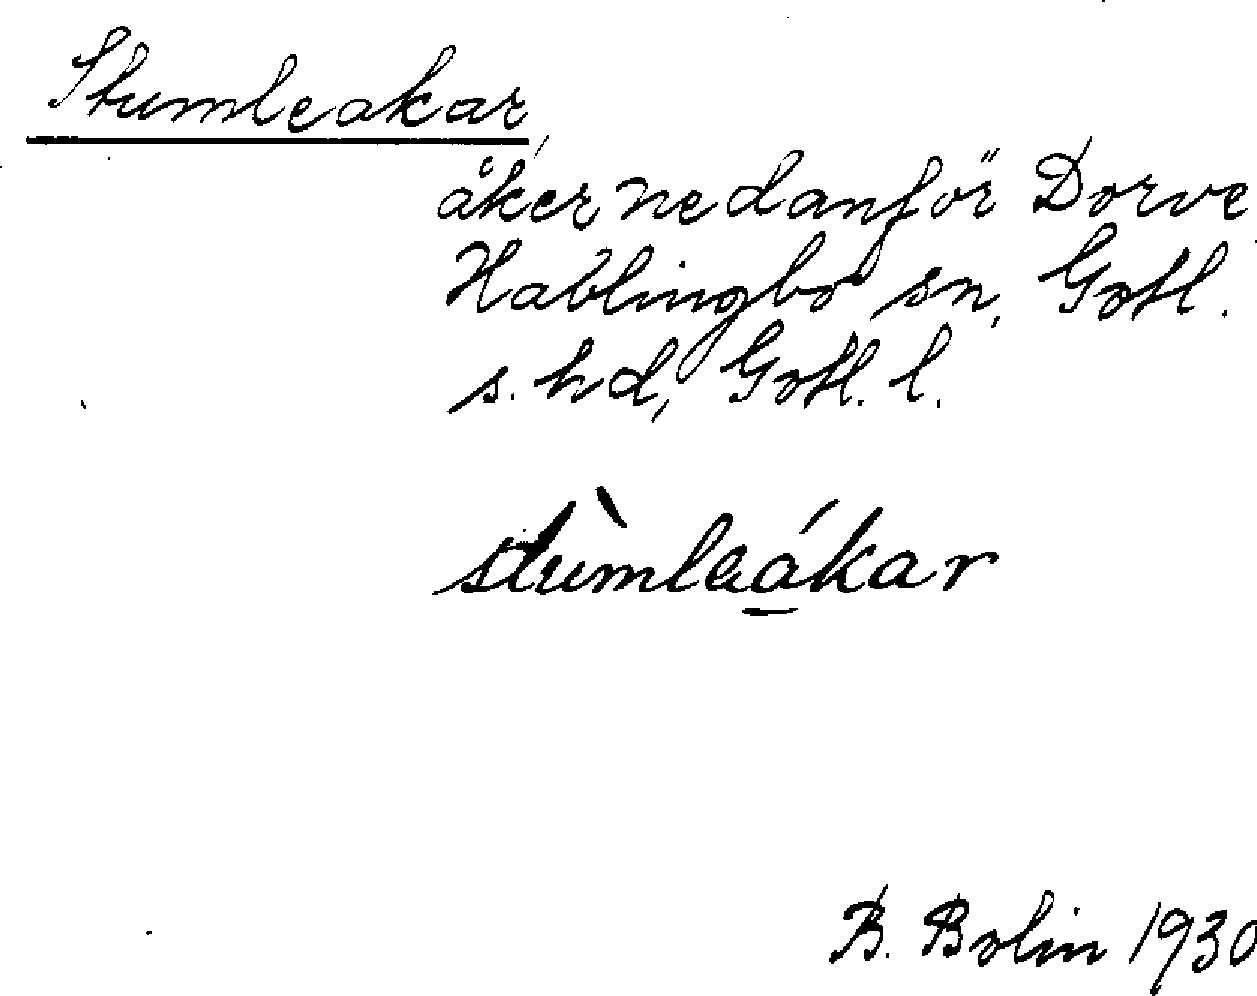 Stumleakar,
åker nedanför Dorve
Hablingbo sn, Gotl.
s. hd, Gotl. l.
stùmleá̲kar
B. Bolin 1930